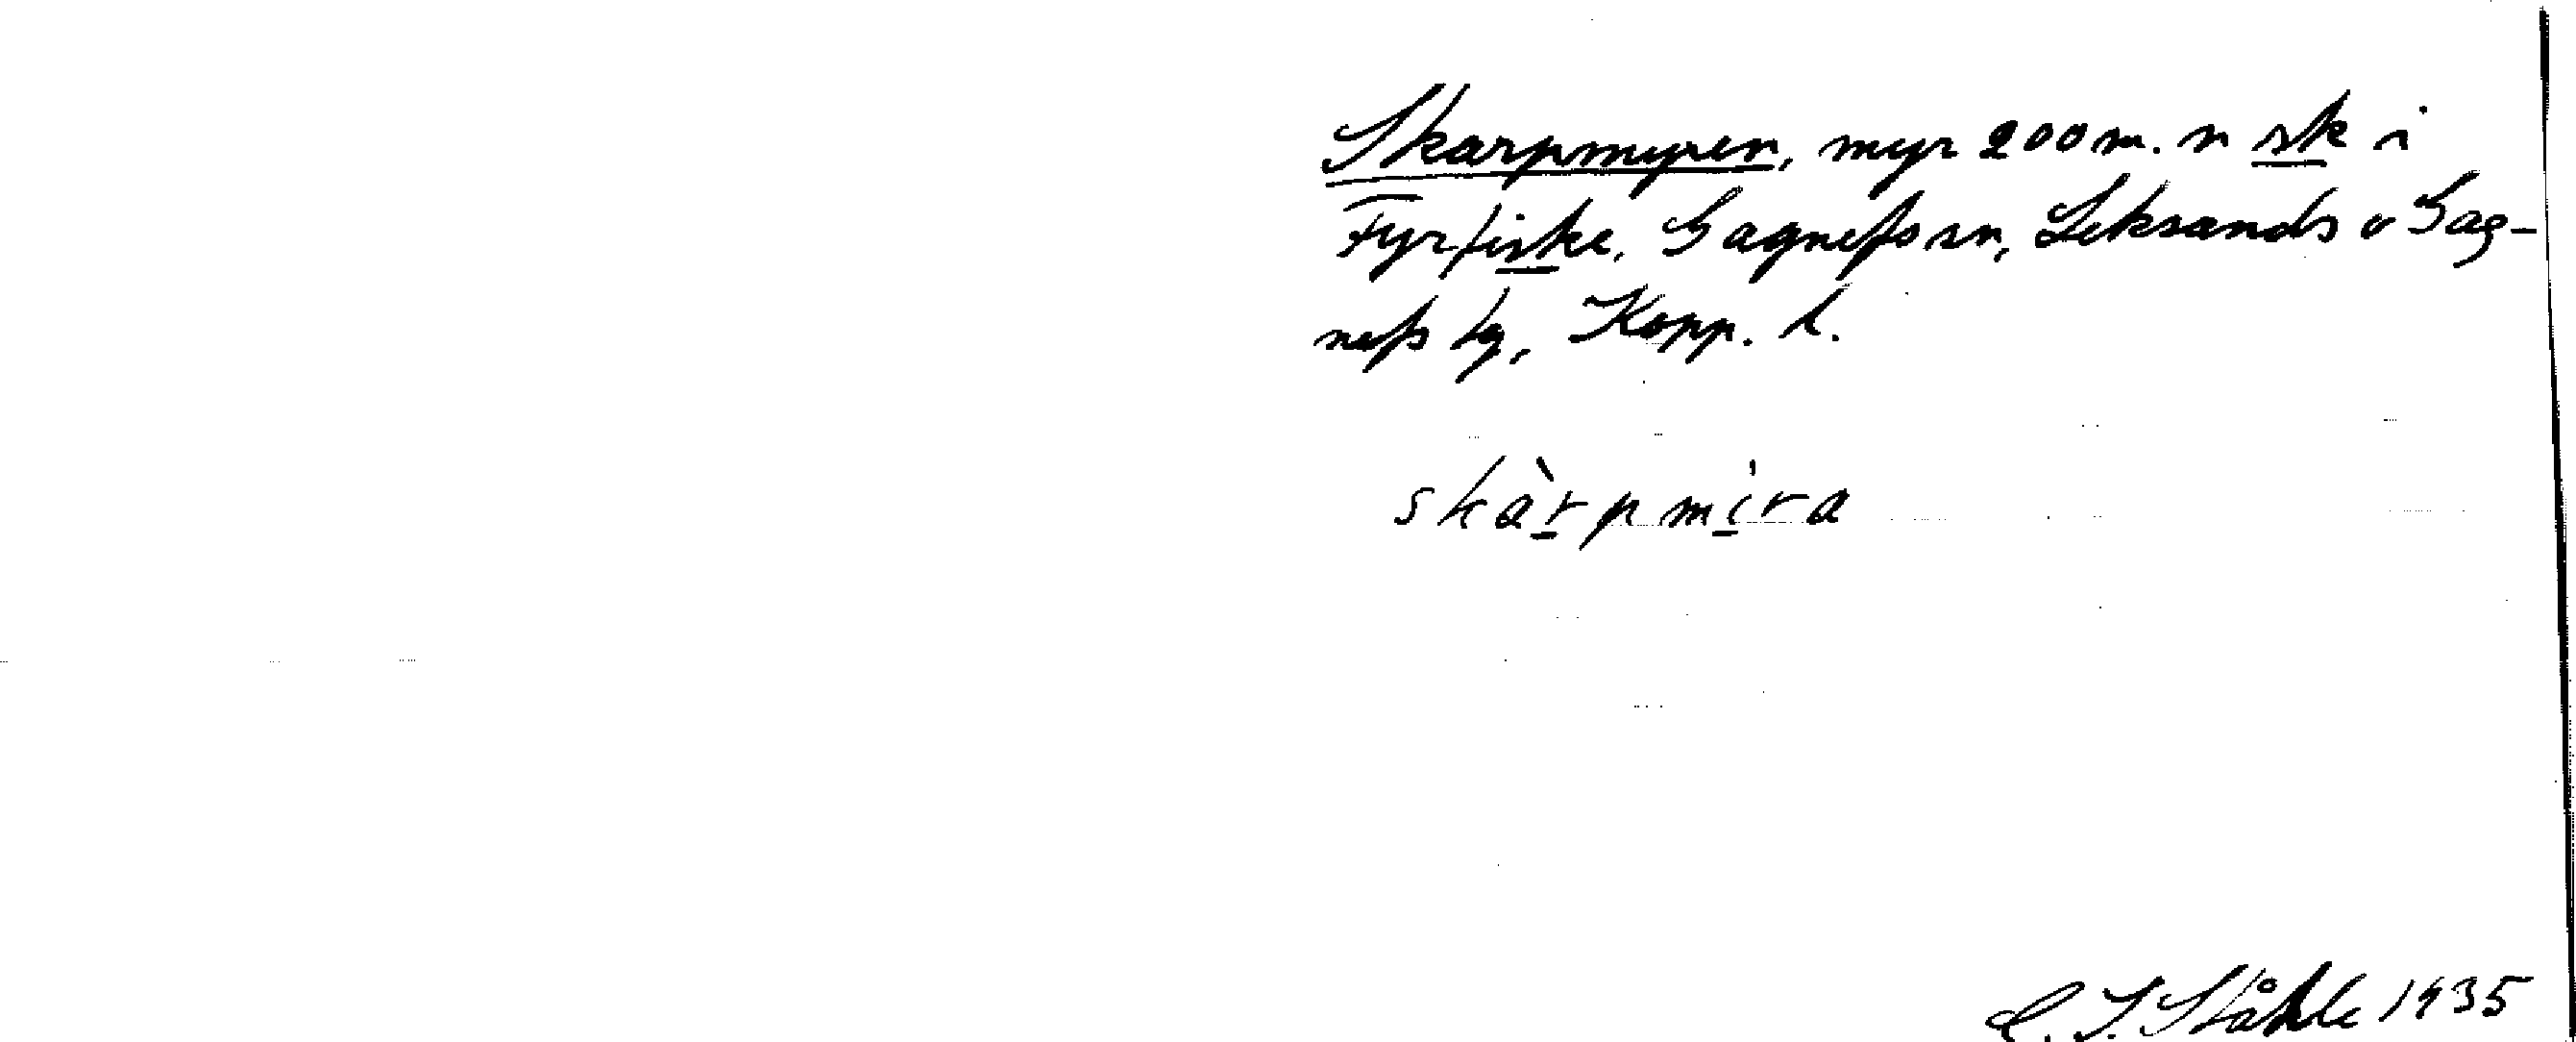 Skarpmyren, myr 200 m. n sk i
Fyrfiske, Gagnefs sn, Leksands o Gag-
nefs tg, Kopp. l.
skàrpmira
C. I. Ståhle 1935